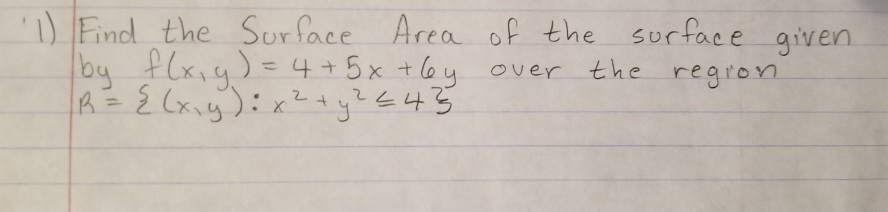 1) Find the Surface Area of the surface given
by f(x,y) = 4 + 5x + 6y over the region
R = {(x,y): x² + y² ≤ 4}